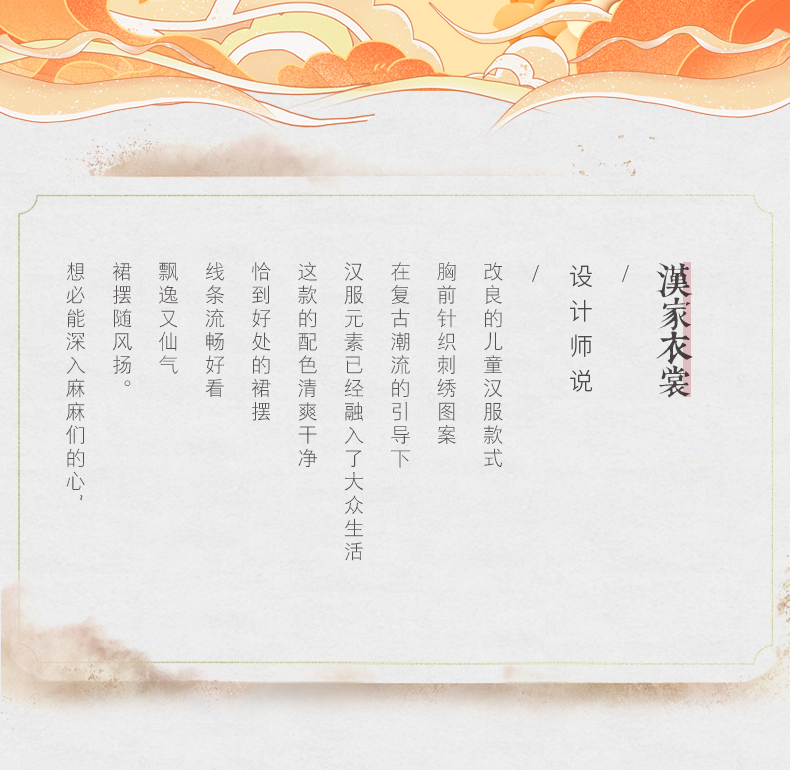 漢家衣裳
/
设计师说
/
改良的儿童汉服款式
胸前针织刺绣图案
在复古潮流的引导下
汉服元素已经融入了大众生活
这款的配色清爽干净
恰到好处的裙摆
线条流畅好看
飘逸又仙气
裙摆随风扬。
想必能深入麻麻们的心~